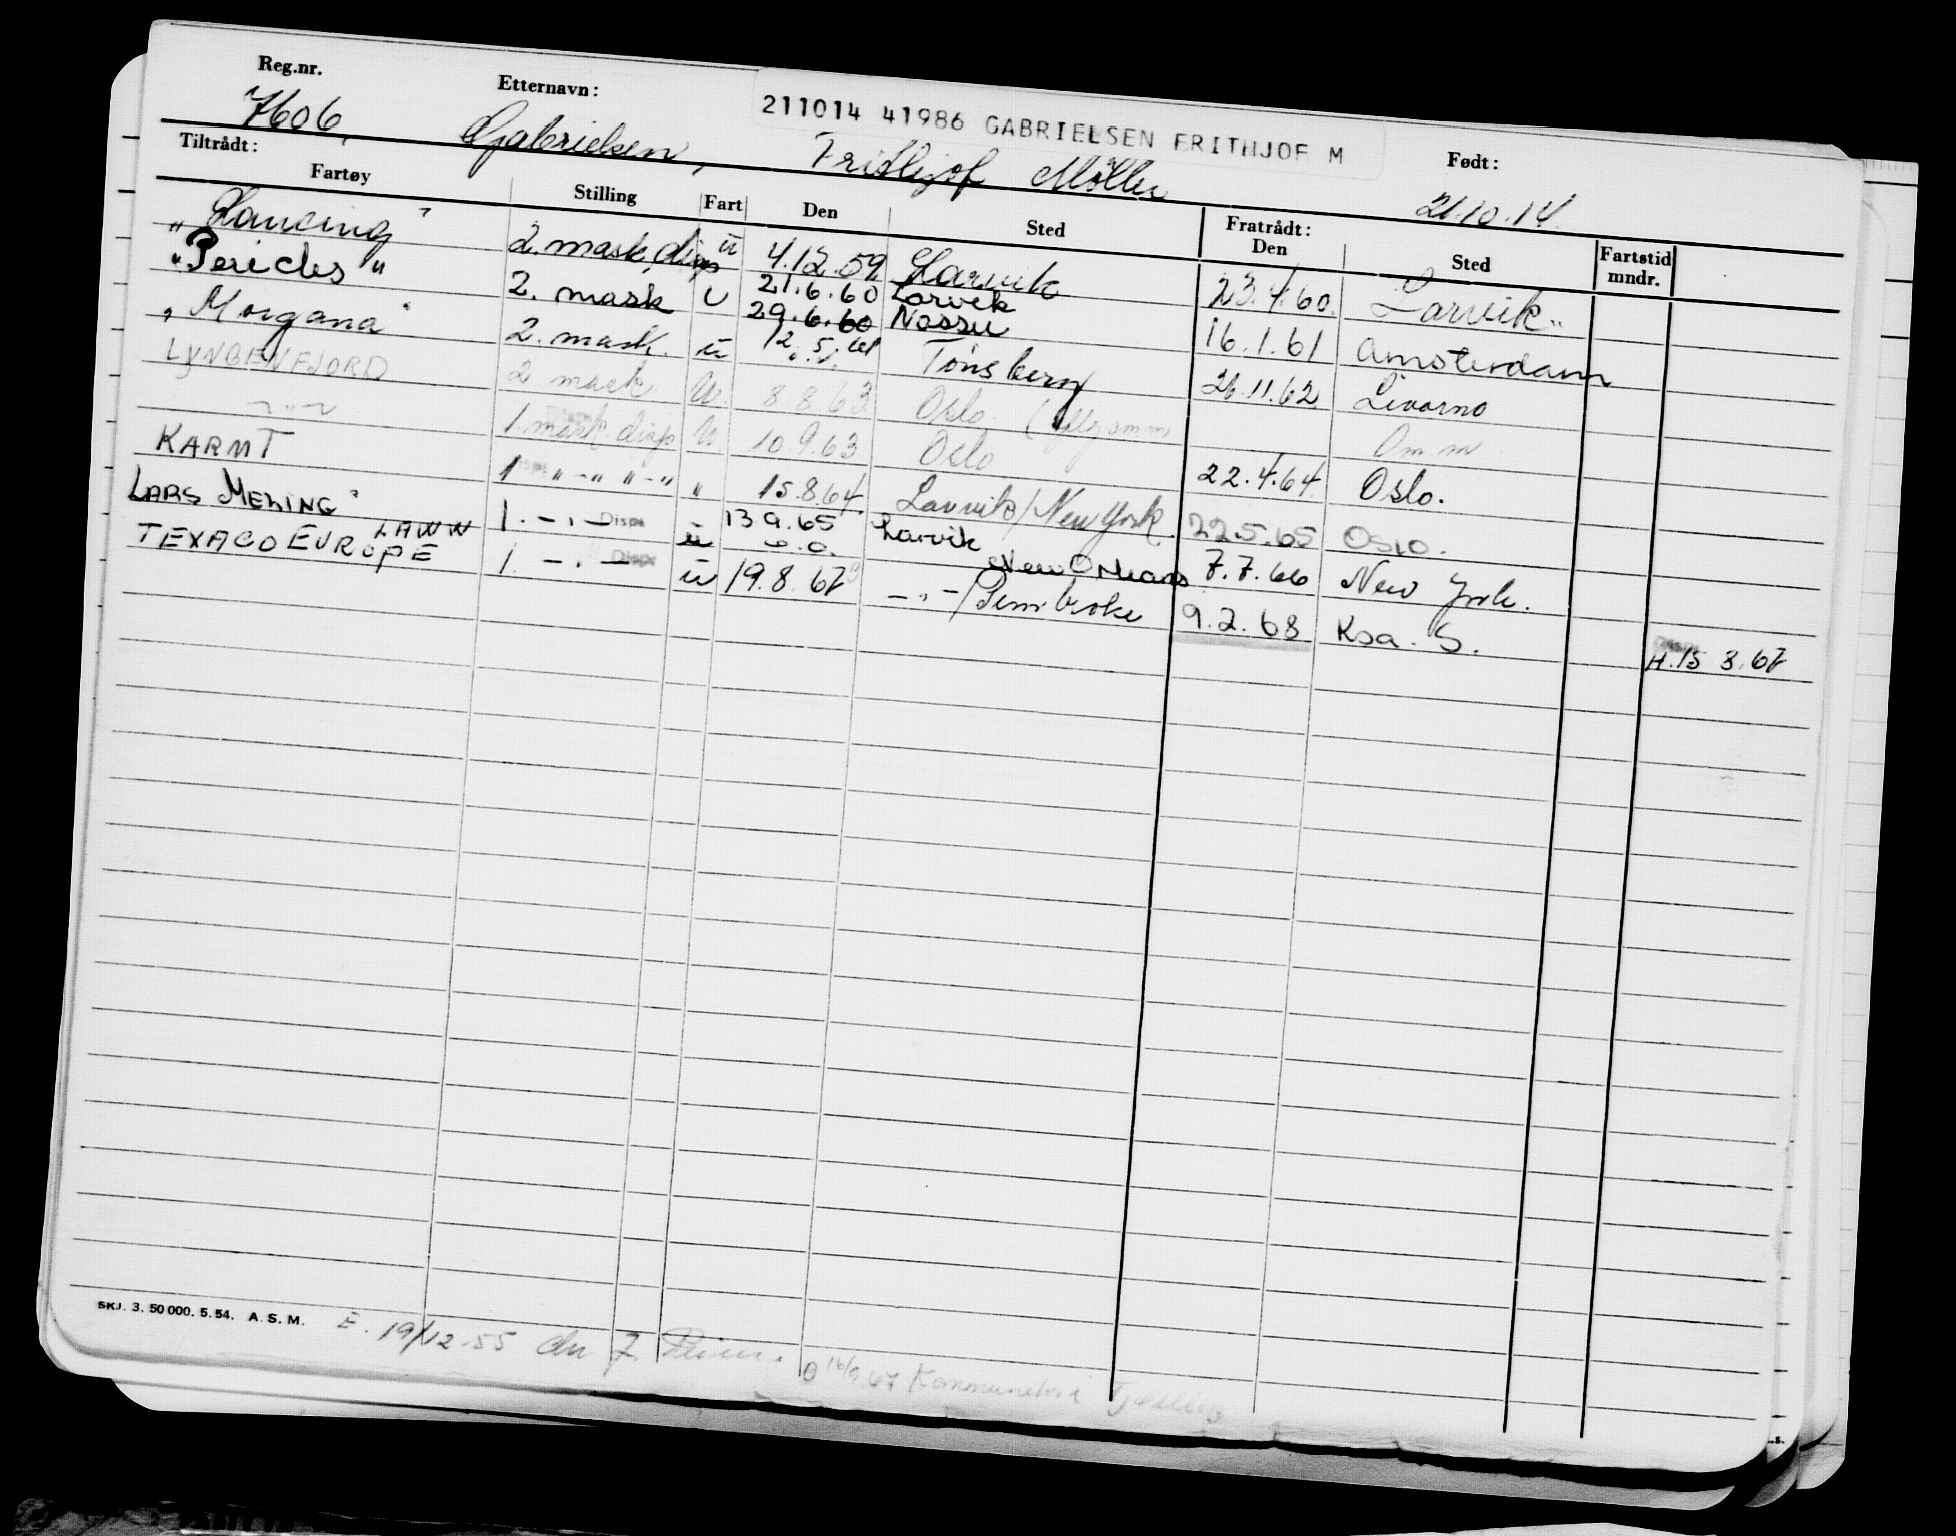 Reg.nr. Etternavn: 211014 41986 GABRIELSEN FRITHJOF M Født:
7606, Gabrielsen, Frithjof Møller 21.10.14.
Tiltrådt: Fratrådt:
Fartøy Stilling Fart Den Sted Den Sted Fartstid mndr.
"Lancing" 2. mask. disp ü 4.12.59. Larvik 23.4.60. Larvik.
"Pericles" 2. mask u 21.6.60 Larvik
29.6.60 16.1.61 Amsterdam
"Morgana" 2. mask. ü 12.5.61 Tønsberg 26.11.62. Livorno
LYNGENFJORD 2 mask U. 8 8 63 Oslo. Om.m
-"- 1. mask. disp U. 10 9.63 Oslo 22.4.64. Oslo.
KARMT 1 Disp. "-" "-" " 15.8.64. Larvik/New York. 22.5.65 OSLO.
LARS MELING" 1. -.- Disp ü 13 9.65 Larvik New Orleans 7.7.66 New York.
TEXACO EUROPE 1. -.- Disp ü 19.8.67 -"-/Pembroke 9.2.68 Ksa. S. H. 15 8.67
SKJ. 3. 50 000. 5. 54. A. S. M. E. 19/12-55
16/9 67 Tjølling